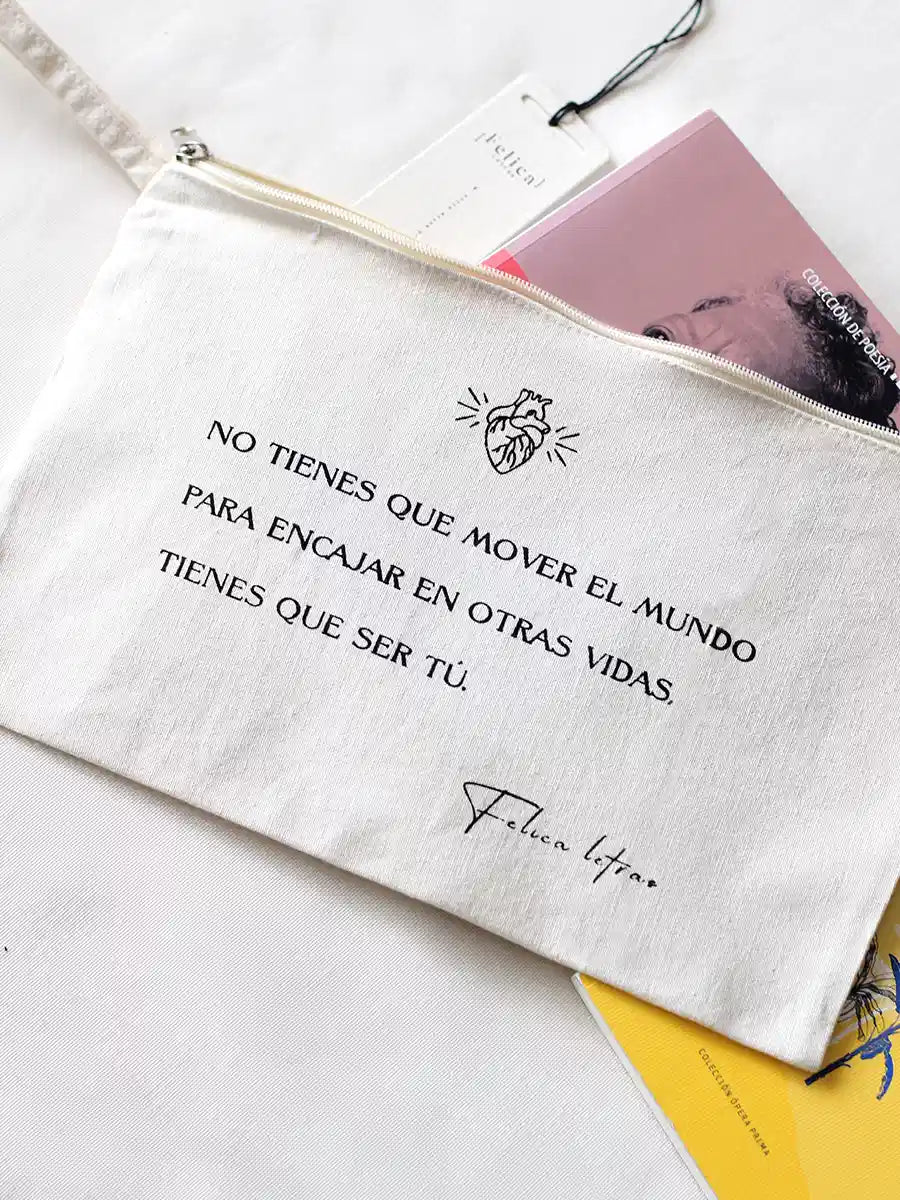 COLECCIÓN DE POESÍA
NO TIENES QUE MOVER EL MUNDO
PARA ENCAJAR EN OTRAS VIDAS,
TIENES QUE SER TÚ.
Feluca letras
COLECCIÓN ÓPERA PRIMA